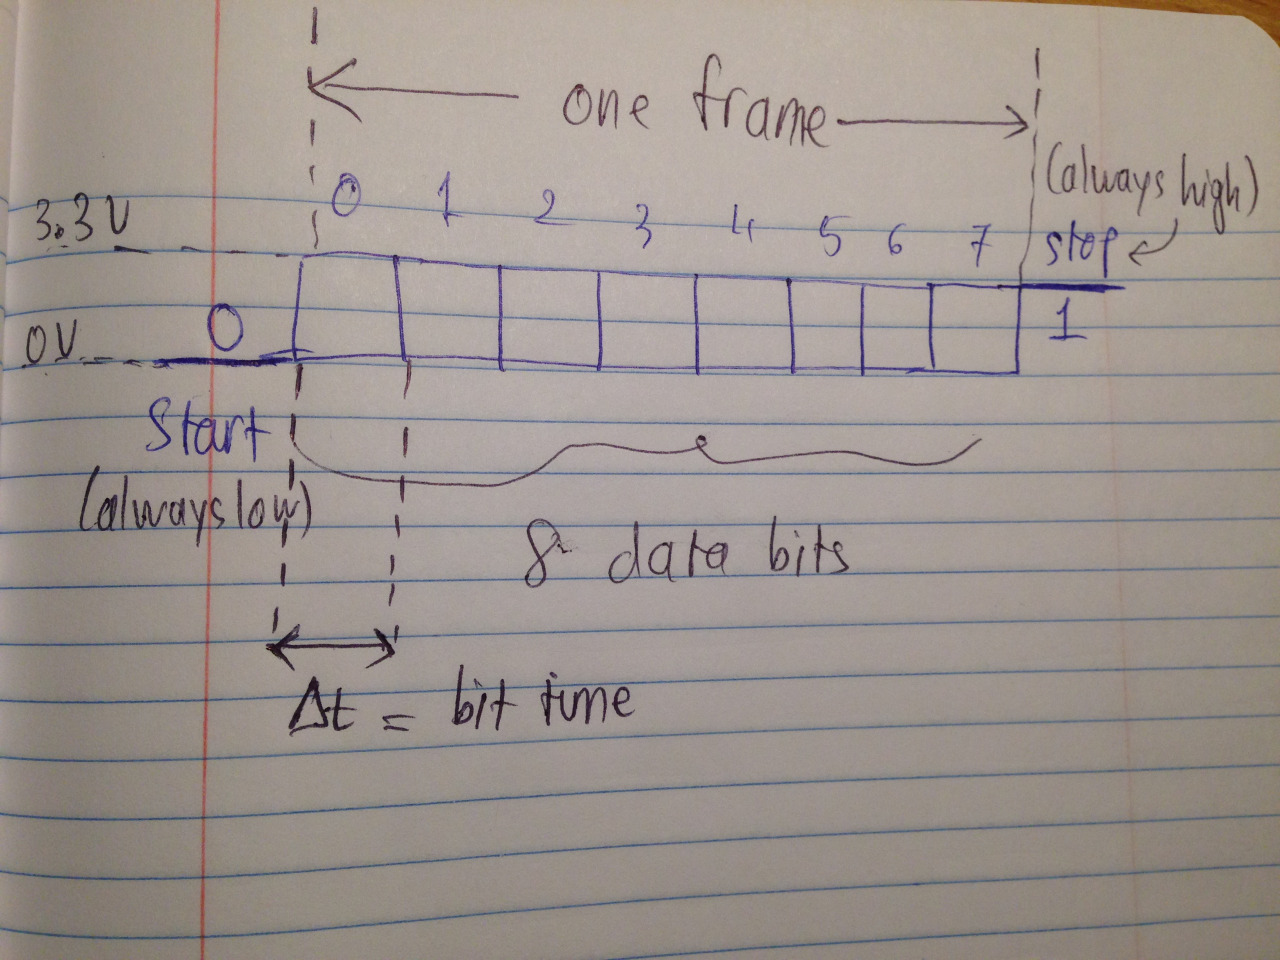 one frame
(always high)
3.3V 0 1 2 3 4 5 6 7 stop
0V 0 1
Start
(always low)
8 data bits
Δt = bit time